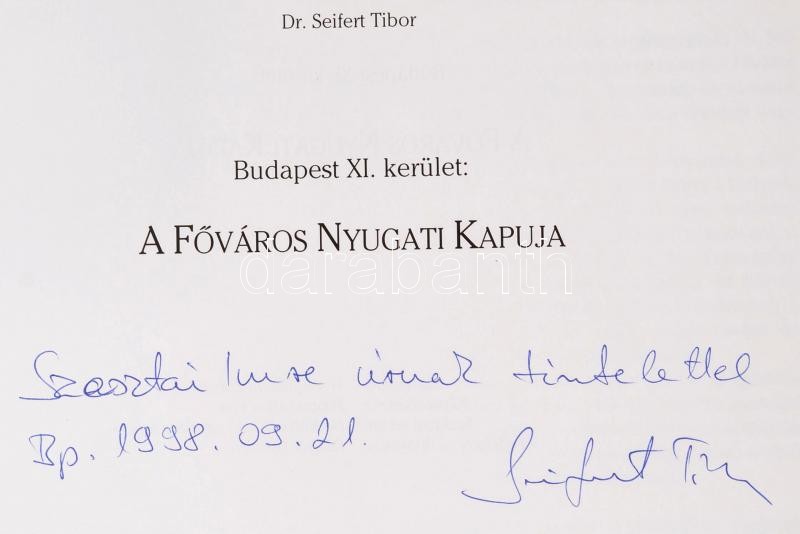 Dr. Seifert Tibor
Budapest XI. kerület:
A FŐVÁROS NYUGATI KAPUJA
darabanth
Szasztai Imre úrnak tisztelettel
Bp. 1998. 09. 21.
Seifert T.